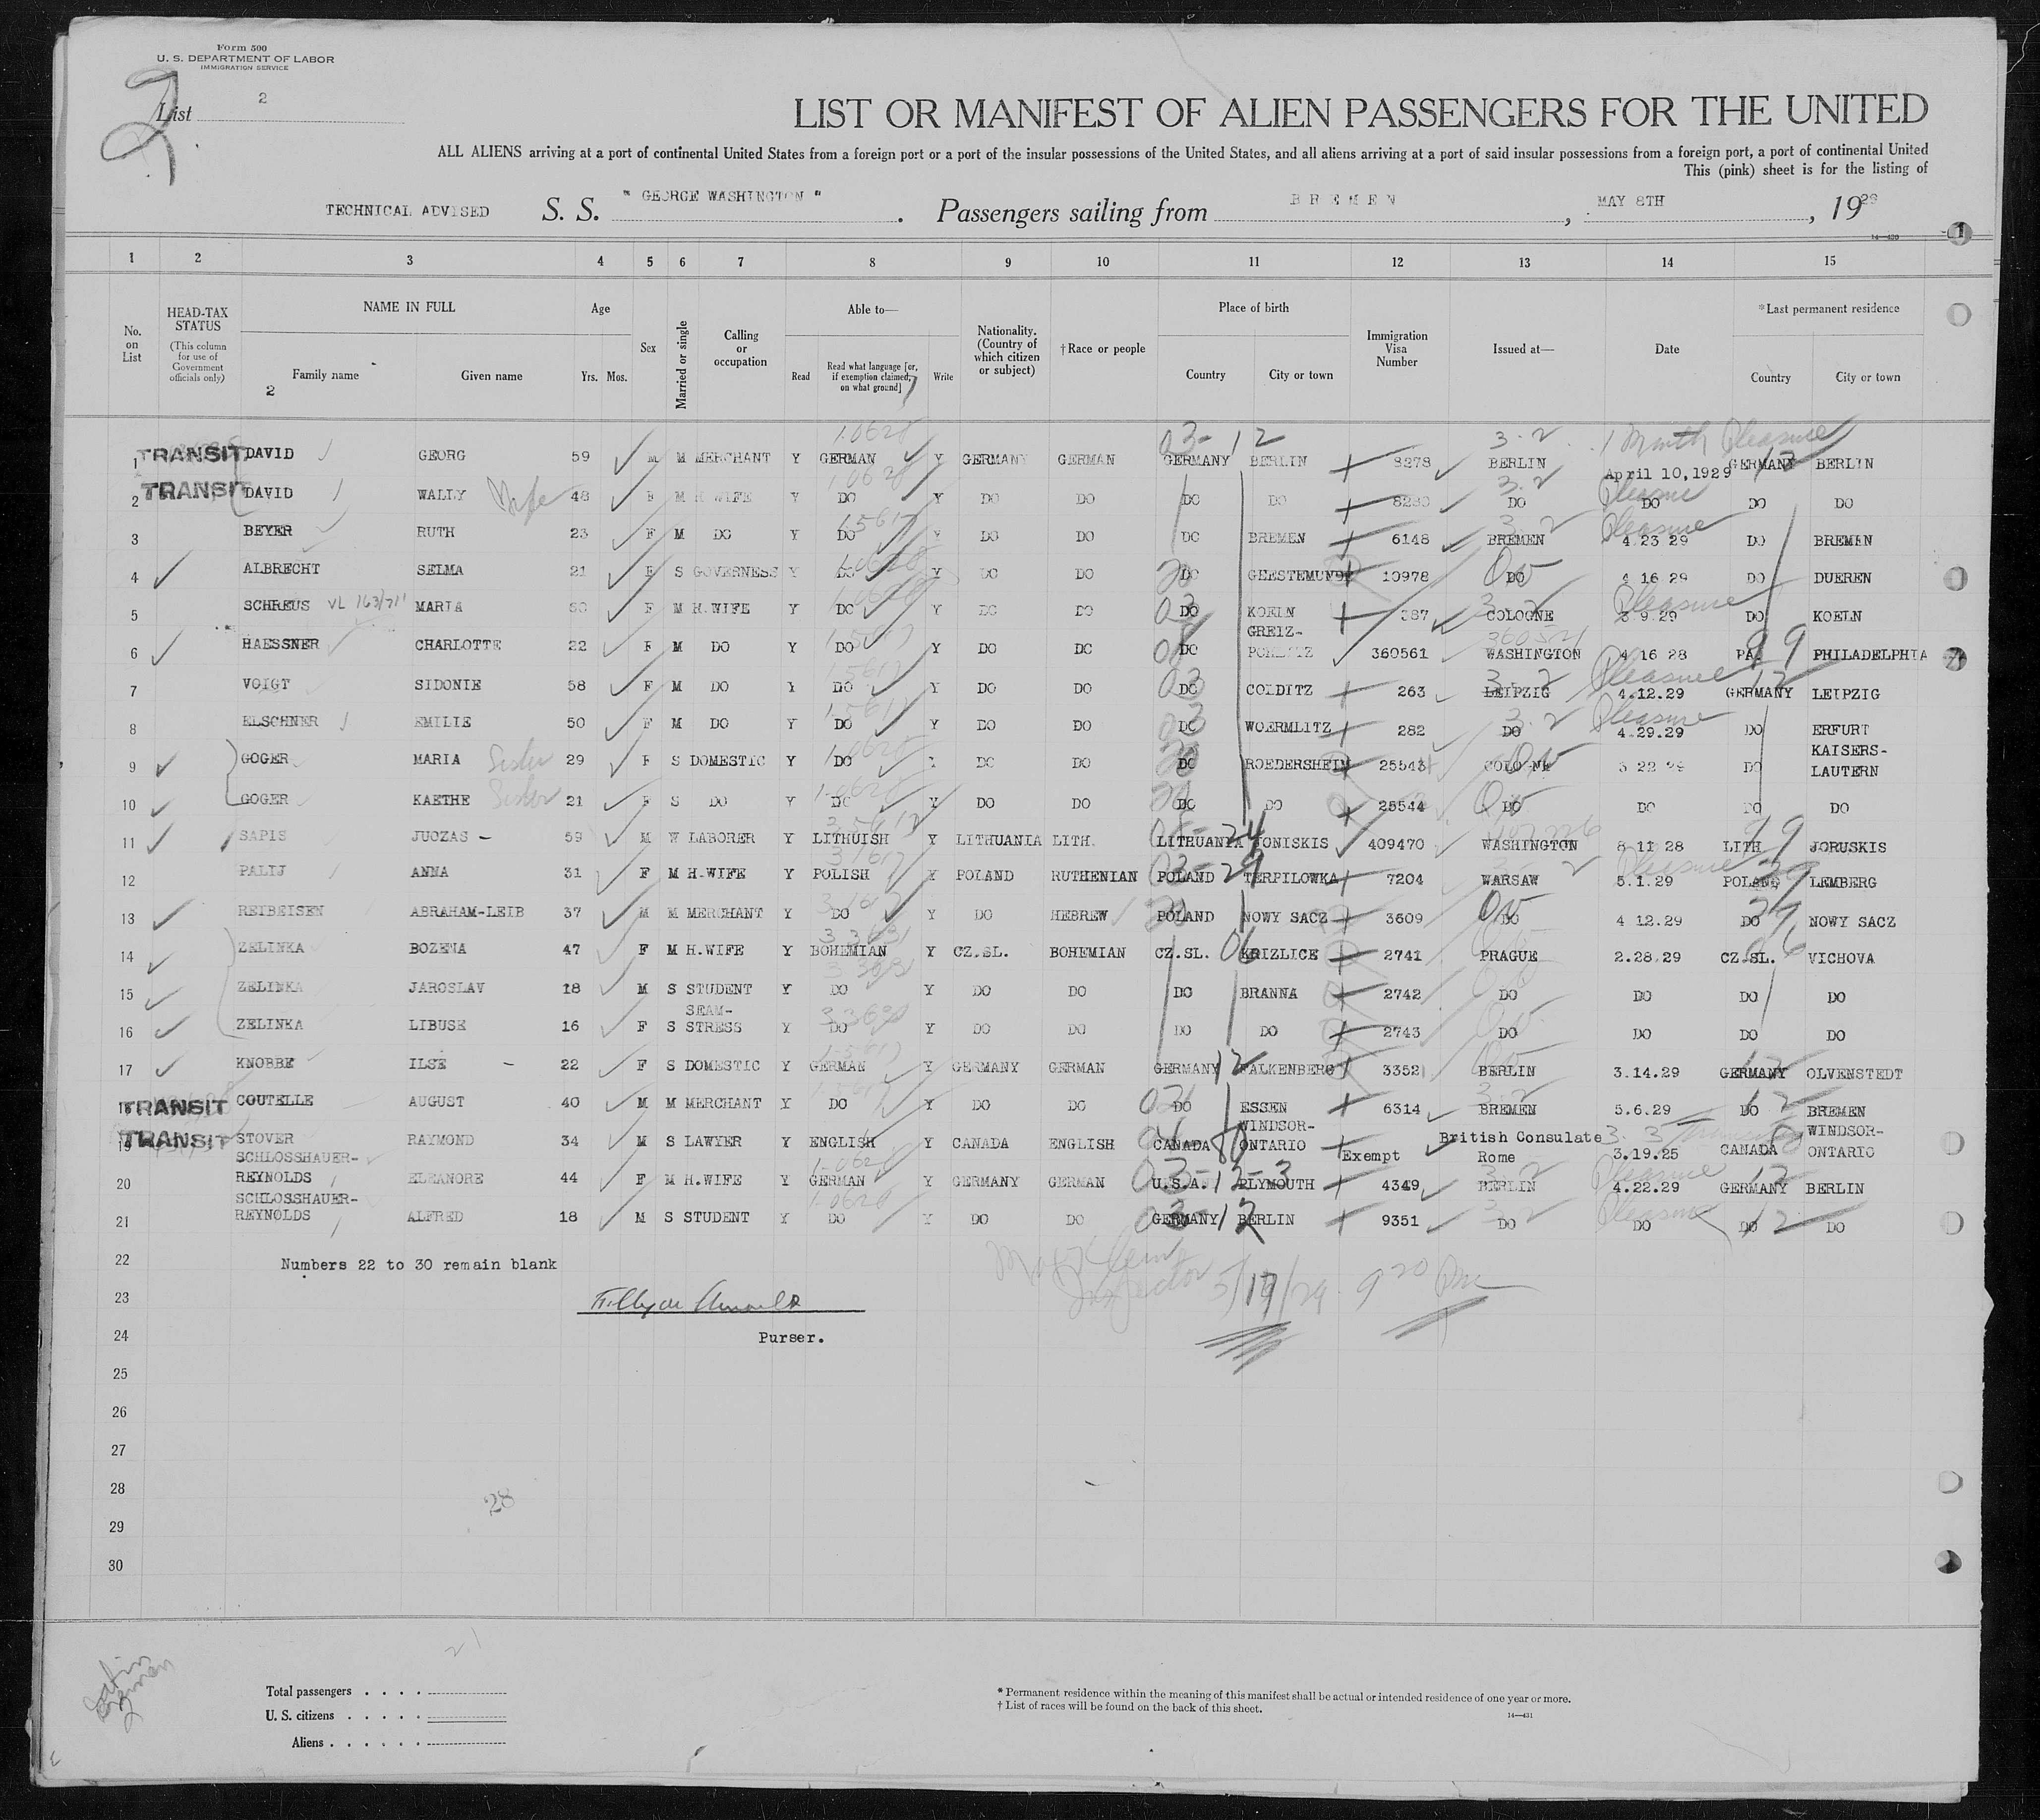 Form 500
U. S. DEPARTMENT OF LABOR
IMMIGRATION SERVICE
2
List 2
LIST OR MANIFEST OF ALIEN PASSENGERS FOR THE UNITED
ALL ALIENS arriving at a port of continental United States from a foreign port or a port of the insular possessions of the United States, and all aliens arriving at a port of said insular possessions from a foreign port, a port of continental United
This (pink) sheet is for the listing of
TECHNICAL ADVISED S. S. " GEORGE WASHINGTON " . Passengers sailing from BREMEN , MAY 8TH , 1929
14—430
1 2 3 4 5 6 7 8 9 10 11 12 13 14 15
No. on List
HEAD-TAX STATUS
(This column for use of Government officials only)
NAME IN FULL
Family name
Given name
2
Age
Yrs. Mos.
Sex
Married or single
Calling or occupation
Able to—
Read
Read what language [or, if exemption claimed, on what ground]
Write
Nationality. (Country of which citizen or subject)
†Race or people
Place of birth
Country
City or town
Immigration Visa Number
Issued at—
Date
*Last permanent residence
Country
City or town
10628 03-12 3.2 1 Month Pleasure
1 TRANSIT DAVID GEORG 59 M M MERCHANT Y GERMAN Y GERMANY GERMAN GERMANY BERLIN 8278 BERLIN April 10,1929 GERMANY 12 BERLIN
2 TRANSIT DAVID WALLY Wife 48 F M H WIFE Y DO Y DO DO DO DO DO Pleasure DO DO DO
3 BEYER RUTH 23 F M DO Y DO Y DO DO DO BREMEN 6148 BREMEN Pleasure 4 23 29 DO BREMAN
4 ALBRECHT SELMA 21 F S GOVERNESS Y DO Y DO DO DO GEESTEMUNDE 10978 DO 4 16 29 DO DUEREN
5 SCHREUS VL 163/711 MARIA F M H.WIFE Y DO Y DO DO 03 DO KOELN 387 COLOGNE Pleasure 3 9.29 DO KOELN
6 HAESSNER CHARLOTTE 22 F M DO Y DO Y DO DO DO GREIZ-POHLITZ 360561 WASHINGTON 4 16 28 PA. 99 PHILADELPHIA
7 VOIGT SIDONIE 58 F M DO Y DO Y DO DO 03 DO COLDITZ 263 LEIPZIG Pleasure 4.12.29 GERMANY LEIPZIG
8 ELSCHNER EMILIE 50 F M DO Y DO Y DO DO 03 DO WOERMLITZ 282 3.2 DO Pleasure 4.29.29 DO ERFURT
9 GOGER MARIA Sister 29 F S DOMESTIC Y DO Y DO DO DO ROEDERSHEIM 25543 COLOGNE 22 29 DO KAISERS-LAUTERN
10 GOGER KAETHE Sister 21 F S DO Y DO Y DO DO DO DO 25544 DO DO DO DO
11 SAPIS JUOZAS - 59 M W LABORER Y LITHUISH Y LITHUANIA LITH. LITHUANIA 24 JONISKIS 409470 WASHINGTON 8 11 28 LITH 99 JORUSKIS
12 PALIJ ANNA 31 F M H.WIFE Y POLISH Y POLAND RUTHENIAN 03-29 POLAND TERPILOWKA 7204 WARSAW Pleasure 5.1.29 POLAND LEMBERG
13 REIBEISEN ABRAHAM-LEIB 37 M M MERCHANT Y DO Y DO HEBREW POLAND NOWY SACZ 3609 DO 4 12.29 DO 29 NOWY SACZ
14 ZELINKA BOZENA 47 F M H.WIFE Y BOHEMIAN Y CZ.SL. BOHEMIAN CZ.SL. 06 KRIZLICE 2741 PRAGUE 2.28.29 CZ.SL. 06 VICHOVA
15 ZELINKA JAROSLAV 18 M S STUDENT Y DO Y DO DO DO BRANNA 2742 DO DO DO DO
16 ZELINKA LIBUSE 16 F S SEAM-STRESS Y DO Y DO DO DO DO 2743 DO DO DO DO
17 KNOBBE ILSE - 22 F S DOMESTIC Y GERMAN Y GERMANY GERMAN GERMANY 12 FALKENBERG 3352 BERLIN 3.14.29 GERMANY 12 OLVENSTEDT
18 TRANSIT COUTELLE AUGUST 40 M M MERCHANT Y DO Y DO DO DO ESSEN 6314 3.2 BREMEN 5.6.29 DO 12 BREMEN
19 TRANSIT STOVER RAYMOND 34 M S LAWYER Y ENGLISH Y CANADA ENGLISH CANADA 80 WINDSOR-ONTARIO Exempt British Consulate Rome 3. 3 3.19.25 CANADA WINDSOR-ONTARIO
20 SCHLOSSHAUER-REYNOLDS ELEANORE 44 F M H.WIFE Y GERMAN Y GERMANY GERMAN 03-12-3 U.S.A. PLYMOUTH 4349 3.2 BERLIN Pleasure 4.22.29 GERMANY 12 BERLIN
21 SCHLOSSHAUER-REYNOLDS ALFRED 18 M S STUDENT Y DO Y DO DO 03-12 GERMANY BERLIN 9351 3.2 DO Pleasure DO DO 12 DO
22 Numbers 22 to 30 remain blank
Inspector 5/17/29 9 20 Pm
23
24 Purser.
25
26
27
28
28
29
30
21
Total passengers . . . .
U. S. citizens . . . . .
Aliens . . . . . .
* Permanent residence within the meaning of this manifest shall be actual or intended residence of one year or more.
† List of races will be found on the back of this sheet.
14—431